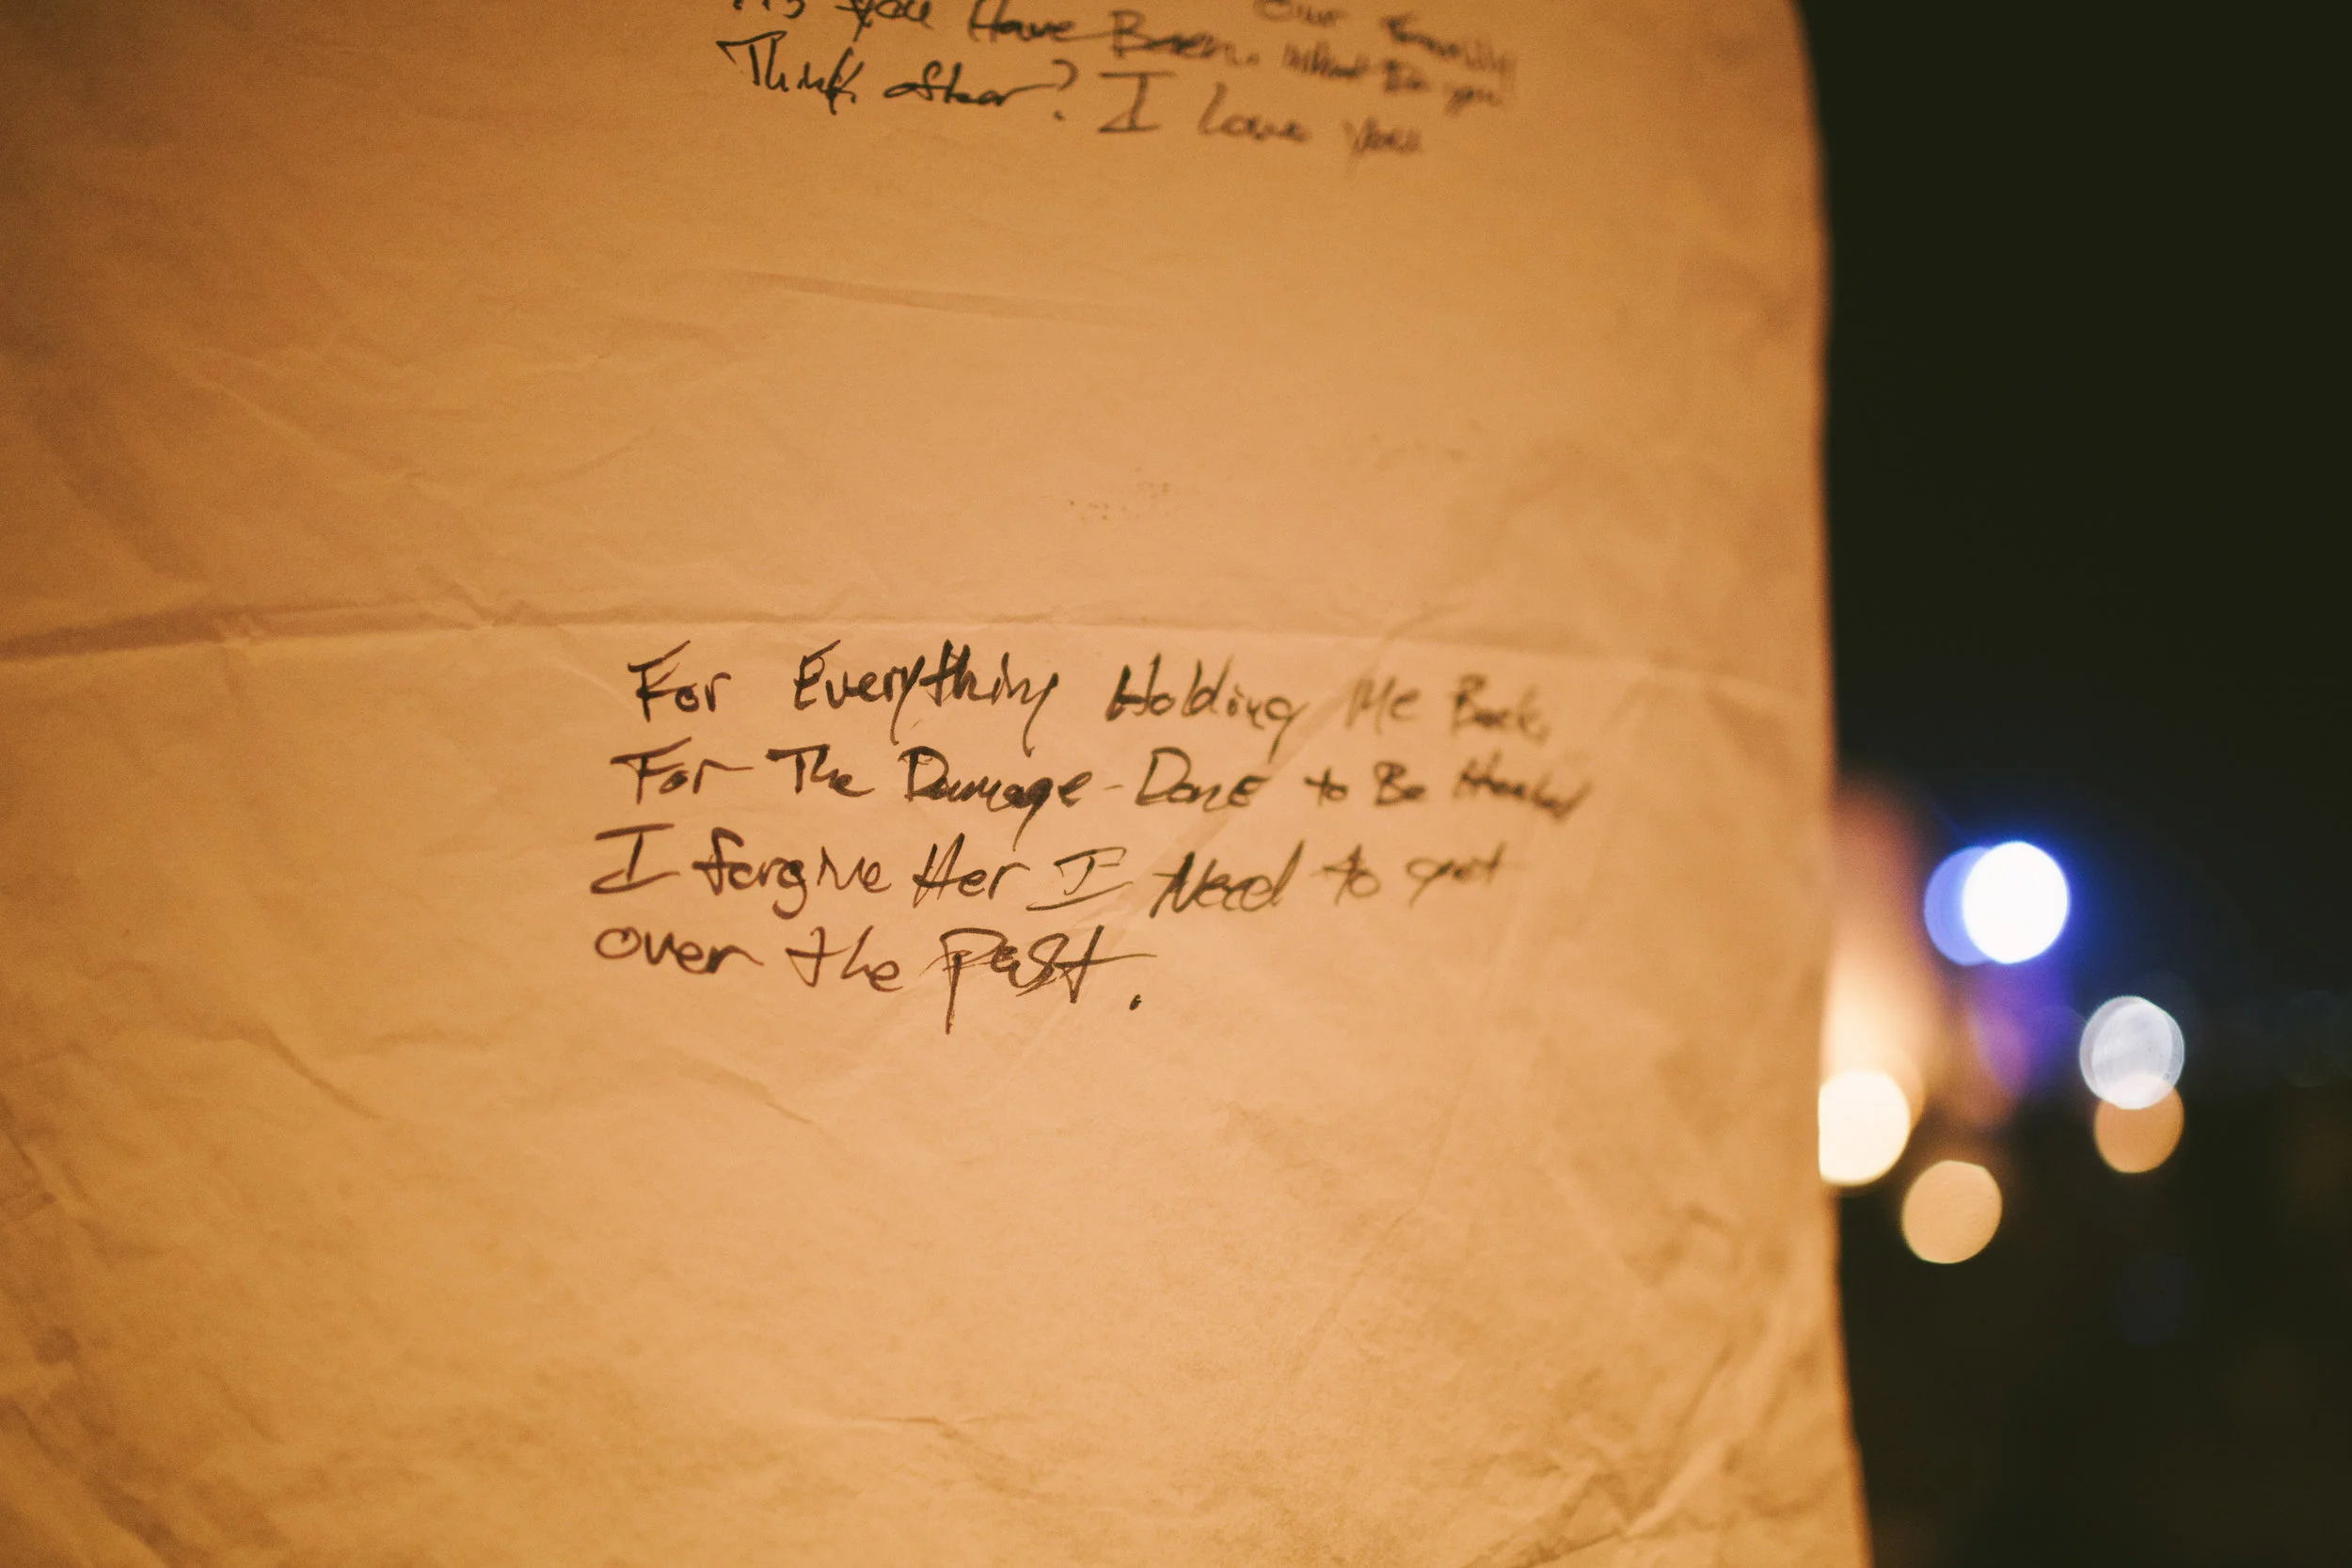 Our Family
As you Have Been. What Do you
Think of her? I Love You
For Everything Holding Me Back,
For The Damage Done to Be Healed
I forgive Her I Need to get
over the past.